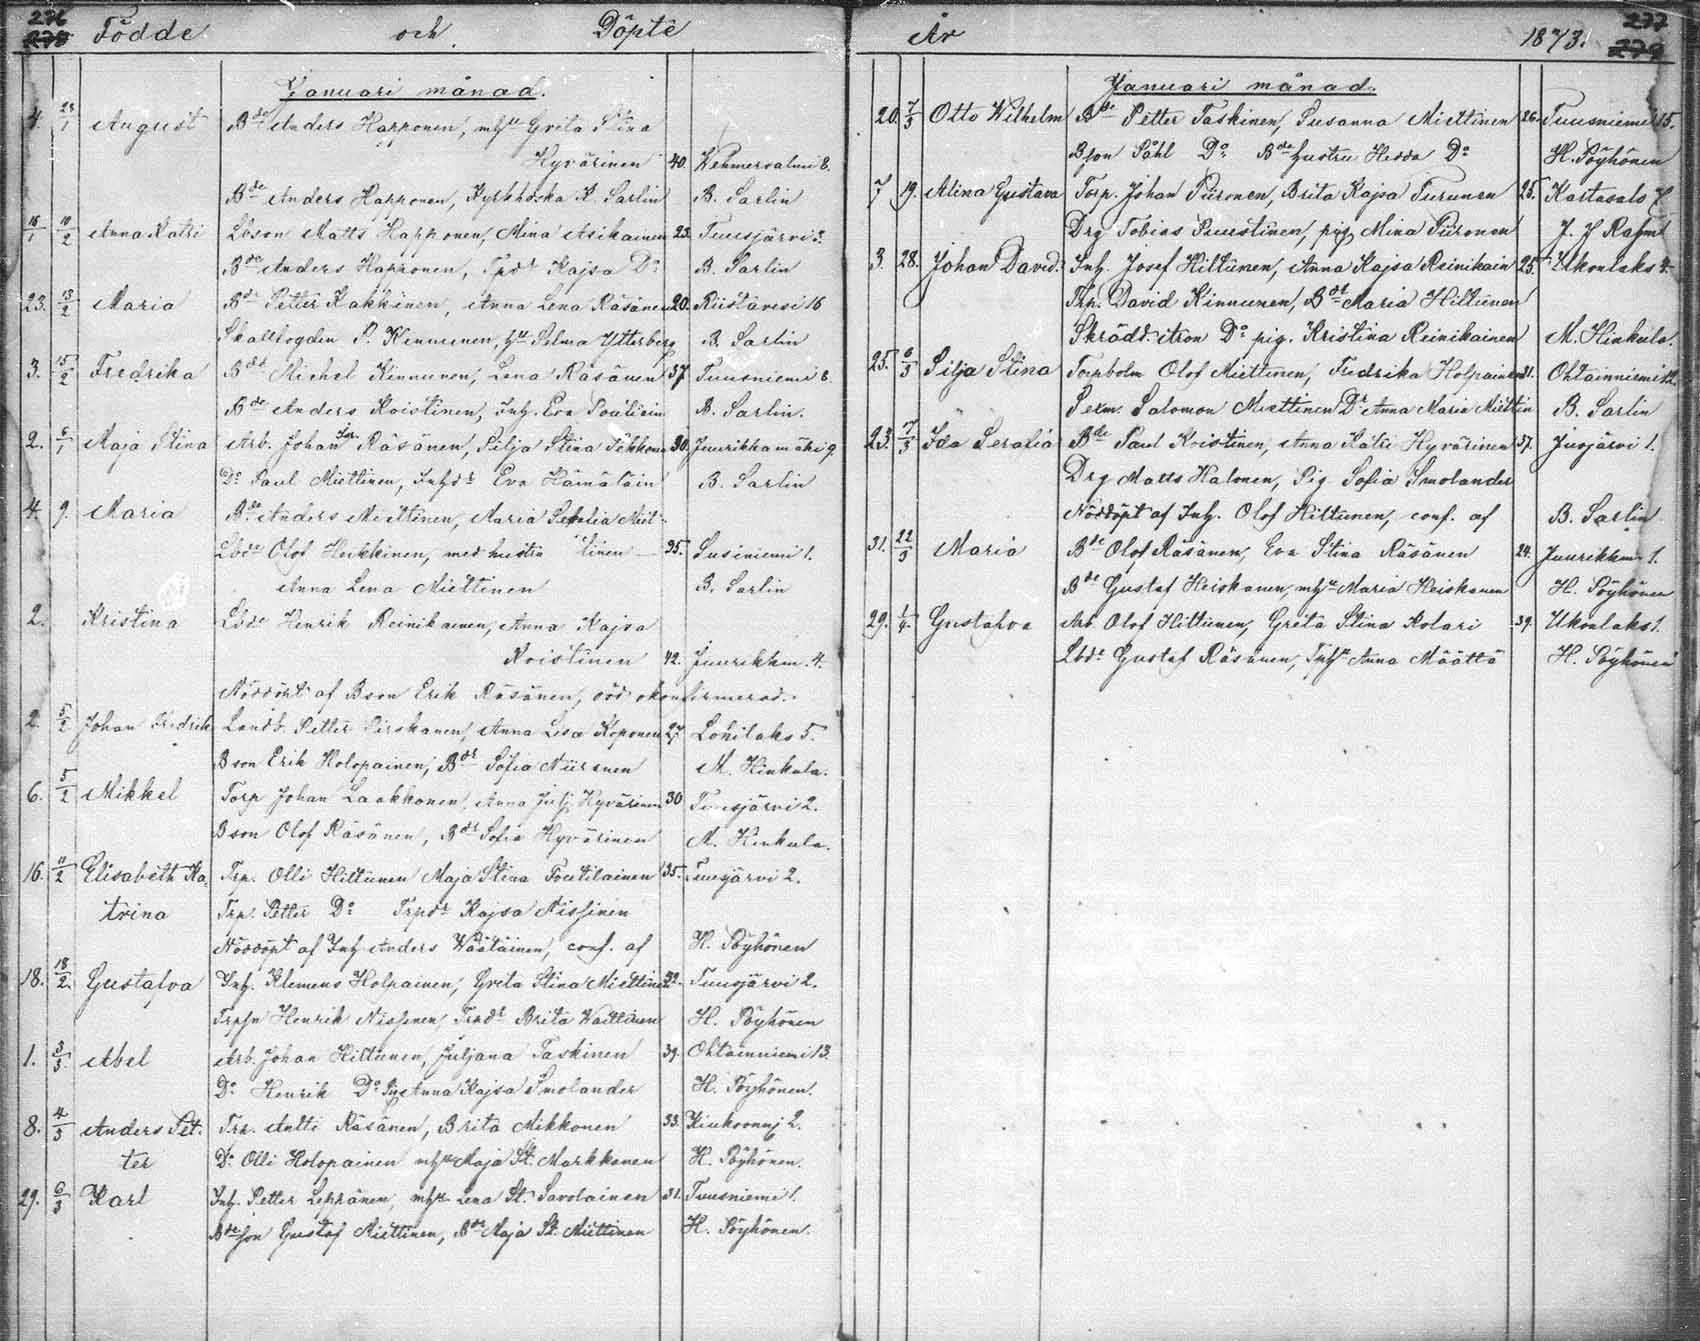 276
278 Födde och Döpte
Januari månad.
4. 23/1 August Bde Anders Happonen, mhu Greta Stina
Hyvärinen 40. Wehmersalmi 8.
Bde Anders Happonen, Kyrkhdska K. Sarlin B. Sarlin
16/1 10/2 Anna Katri Lbson Matts Happonen, Mina Asikainen 23. Tuusjärvi 5.
Bde Anders Happonen, Trpdr Kajsa Do B. Sarlin
23. 13/2 Maria Bde Petter Kakkinen, Anna Lena Räsänen 20. Riistavesi 16
Skallfogden P. Kinnunen, hu Selma Ytterberg B. Sarlin
3. 15/2 Fredrika Bde Michel Kinnunen, Lena Räsänen 37 Tuusniemi 8.
Bde Anders Koistinen, Inh. Eva B. Sarlin.
2. 6/1 Maja Stina Arb. Johan Räsänen, Silja Stina 30. Juurikkamäki 9
Do Paul Miettinen, Inhdr Eva Hämäläin B. Sarlin
4. 9. Maria Bde Anders Miettinen, Maria Serafia Miet-
Lbde Olof Heikkinen, med hustru tinen 35. Susiniemi 1.
Anna Lena Miettinen B. Sarlin
2. Kristina Lbde Henrik Reinikainen, Anna Kajsa
Koistinen 42. Juurikkm. 4.
Nöddöpt af Bson Erik Räsänen, död okonfirmerad.
2. 5/2 Johan Fredrik Landb. Petter Pirskanen, Anna Lisa Koponen 27 Lohilaks 5.
Bson Erik Holopainen, Bdr Sofia Niiranen M. Hinkula.
6. 5/2 Mikkel Torp Johan Laakkonen, Anna Julj Hyvärinen 30 Tuusjärvi 2.
Bson Olof Räsänen, Bdr Sofia Hyvärinen M. Hinkula.
16. 11/2 Elisabeth Ka- Trp. Olli Hiltunen Maja Stina Toutilainen 35. Tuusjärvi 2.
trina Trp. Petter Do Trpdr Kajsa Nissinen
Nöddöpt af Inh Anders Wäätäinen, conf. af H. Pöyhönen
18. 18/2. Gustafva Inh. Klemens Holpainen, Greta Stina Miettine 32. Tuusjärvi 2.
Trpsn Henrik Nissinen, Trpdr Brita Waittinen H. Pöyhönen
1. 3/3. Abel Arb. Johan Hiltunen, Juljana Taskinen 39. Ohtainniemi 13.
Do Henrik Do Anna Kajsa Smolander H. Pöyhönen.
8. 4/3 Anders Pet- Trp. Antti Räsänen, Brita Mikkonen 33. 2.
ter Do Olli Holopainen mhu Maja St. Markkanen H. Pöyhönen.
29. 6/3 Karl Inh. Petter Leppänen, mhu Lena St. Savolainen 31. Tuusniemi 1.
Bdeson Gustaf Miettinen, Bde Maja St. Miettinen H. Pöyhönen.
277
År 1873. 279
Januari månad.
20. 7/3 Otto Wilhelm Bde Petter Taskinen, Susanna Miettinen 26. Tuusniemi 15.
Bson Påhl Do Bde hustru Hedda Do H. Pöyhönen
7/1 19. Alina Gustava Torp. Johan Piironen, Brita Kajsa Turunen 25. Kartasalo 7
Drg Tobias Puustinen, pig. Mina Piironen J. J
3. 28. Johan David. Inh. Josef Hiltunen, Anna Kajsa Reinikain 25. Ukonlaks 4.
Trp. David Kinnunen, Bdr Maria Hiltunen
Skrädd. Aron Do pig. Kristina Reinikainen M. Hinkula.
25. 6/3 Silja Stina Torpholm Olof Miettinen, Fredrika Holpainen 31. Ohtainniemi 12.
Sexm. Salomon Miettinen Dr Anna Maria Miettin B. Sarlin
23. 7/3 Ida Serafia Bde Paul Koistinen, Anna Katri Hyvärinen 37. Jusjärvi 1.
Drg Matts Halonen, Pig Sofia Smolander
Nöddöpt af Inh. Olof Hiltunen, conf. af B. Sarlin
31. 22/3 Maria Bde Olof Räsänen, Eva Stina Räsänen 24. Juurikkm 1.
Bde Gustaf Heiskanen, mhu Maria Heiskanen H. Pöyhönen
29. 1/4 Gustafva Arb Olof Hiltunen, Greta Stina Kolari 39. Ukonlaks 1.
Lbde Gustaf Räsänen, Inhu Anna Määttä H. Pöyhönen